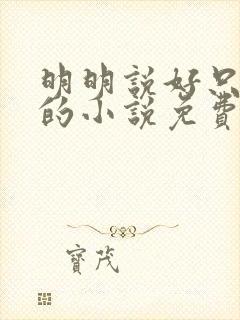 明明說好只
的小說免費
寶茂